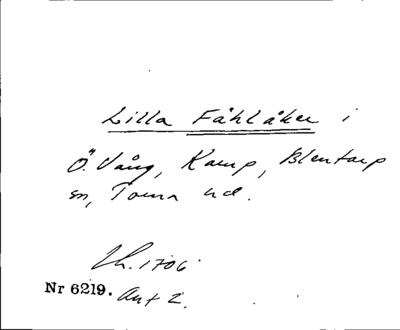 Lilla Fåhlåker i
Ö. Vång, Kamp, Blentarp
sn, Torna hd.
Lh. 1706
Nr 6219. Akt 2.